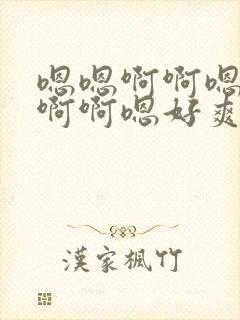 嗯嗯啊啊嗯
啊啊嗯好爽
漢家楓竹